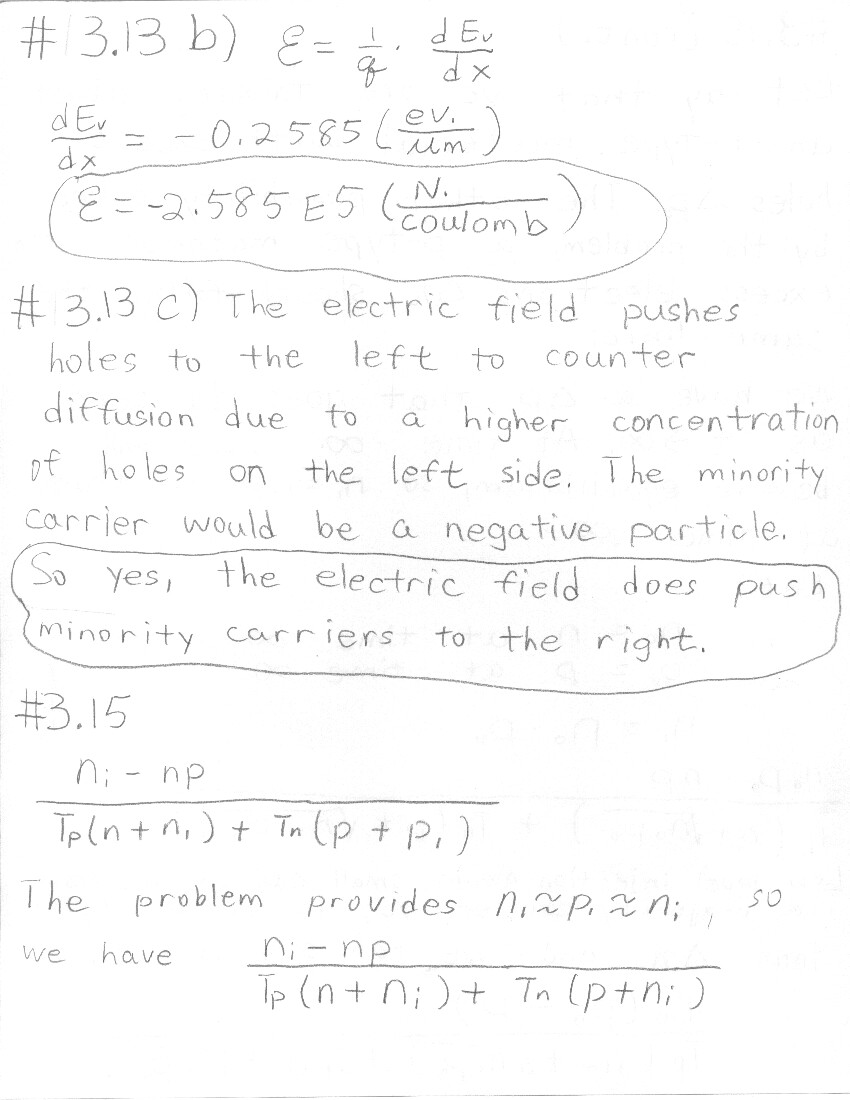 # 3.13 b) ℰ = 1/q · dEv/dx
dEv/dx = -0.2585 (ev./μm)
ℰ = -2.585 E5 (N./coulomb)
# 3.13 c) The electric field pushes
holes to the left to counter
diffusion due to a higher concentration
of holes on the left side. The minority
carrier would be a negative particle.
So yes, the electric field does push
minority carriers to the right.
#3.15
ni - np
Tp(n + n1) + Tn (p + p1)
The problem provides n1 ≈ p1 ≈ ni, so
we have ni - np
Tp (n + ni) + Tn (p + ni)